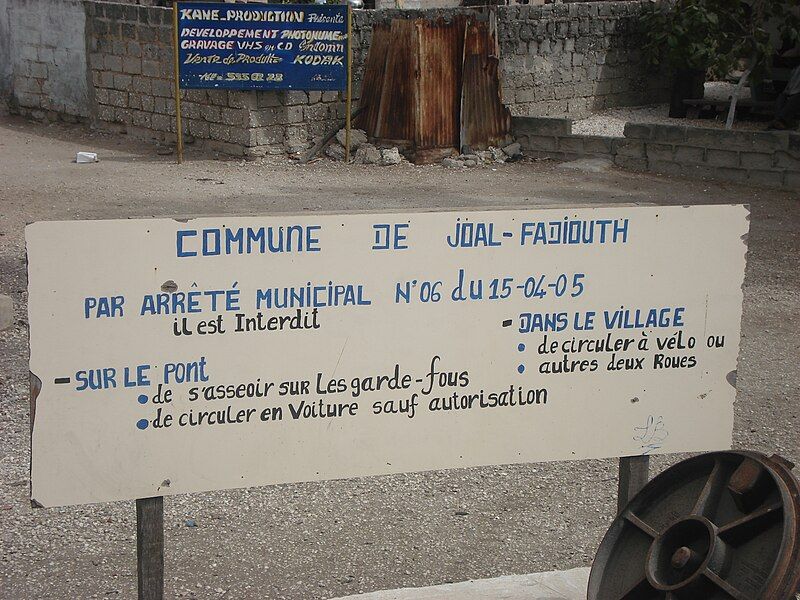 KANE-PRODUCTION Présente
DEVELOPPEMENT PHOTONUME
GRAVAGE VHS en CD
Vente de Produits KODAK
COMMUNE DE JOAL-FADIOUTH
PAR ARRÊTÉ MUNICIPAL N°06 du 15-04-05
il est Interdit
- SUR LE PONT
• de s'asseoir sur Les garde-fous
• de circuler en Voiture sauf autorisation
- DANS LE VILLAGE
• de circuler à vélo ou
• autres deux Roues